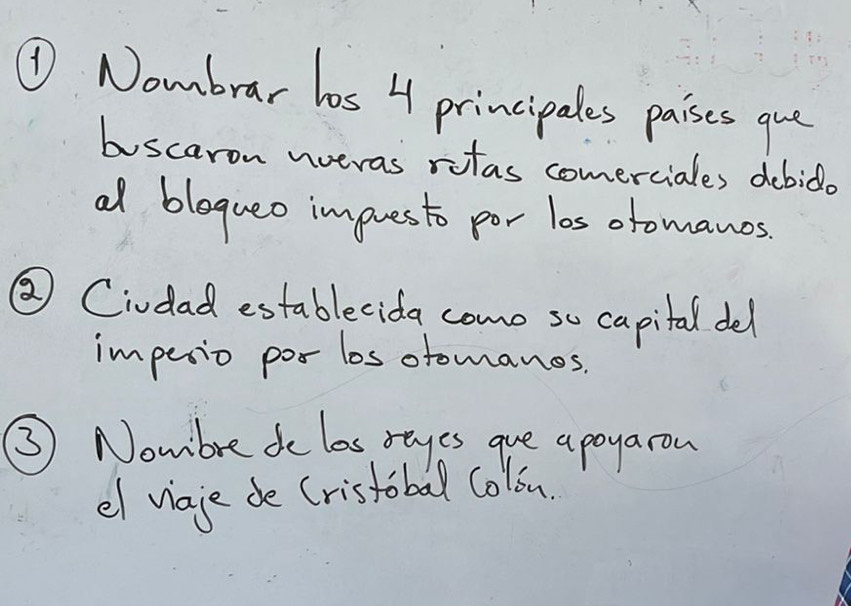 ① Nombrar los 4 principales países que
buscaron nuevas rutas comerciales debido
al bloqueo impuesto por los otomanos.
② Ciudad establecida como su capital del
imperio por los otomanos.
③ Nombre de los reyes que apoyaron
el viaje de Cristóbal Colón.